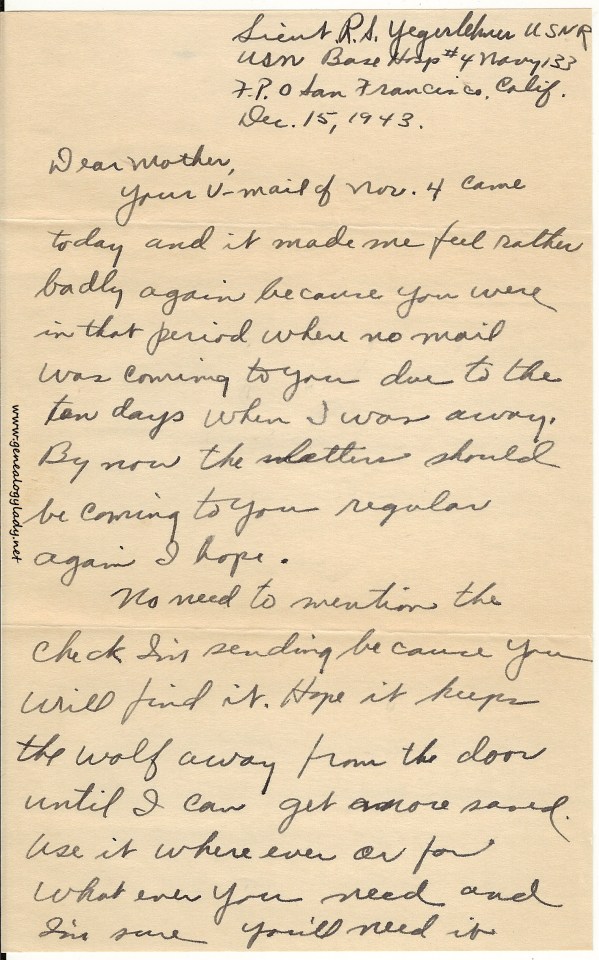 Lieut. R.S. Yegerlehner USNR
USN Base Hosp #4 Navy 133
F.P.O San Francisco, Calif.
Dec. 15, 1943.
Dear Mother,
Your V-mail of Nov. 4 came
today and it made me feel rather
badly again because you were
in that period where no mail
was coming to you due to the
ten days when I was away.
By now the letters should
be coming to you regular
again I hope.
No need to mention the
check I'm sending because you
will find it. Hope it keeps
the wolf away from the door
until I can get more saved.
Use it where ever or for
what ever you need and
I'm sure you'll need it
www.genealogylady.net